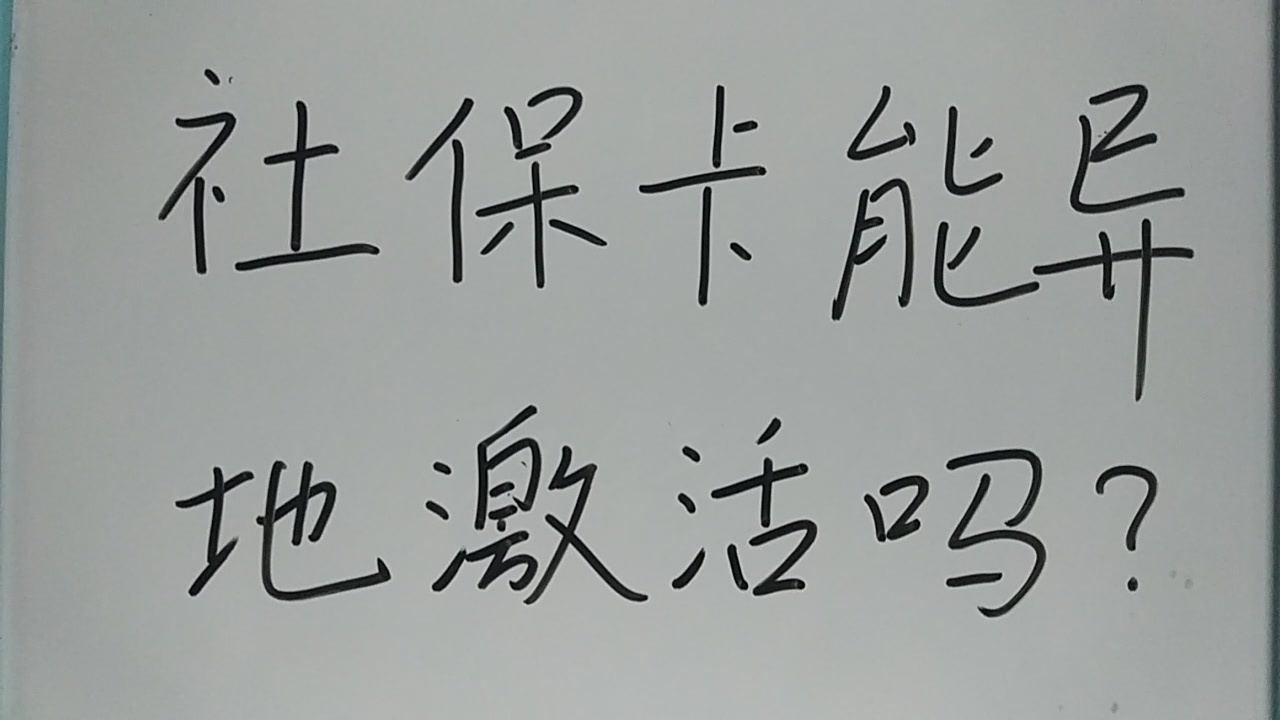 社保卡能异
地激活吗?